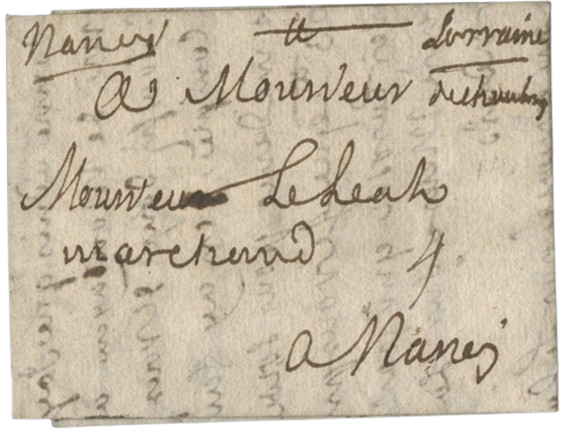 Nancy Lorraine
A Monsieur
Monsieur
marchand 4
a Nancy